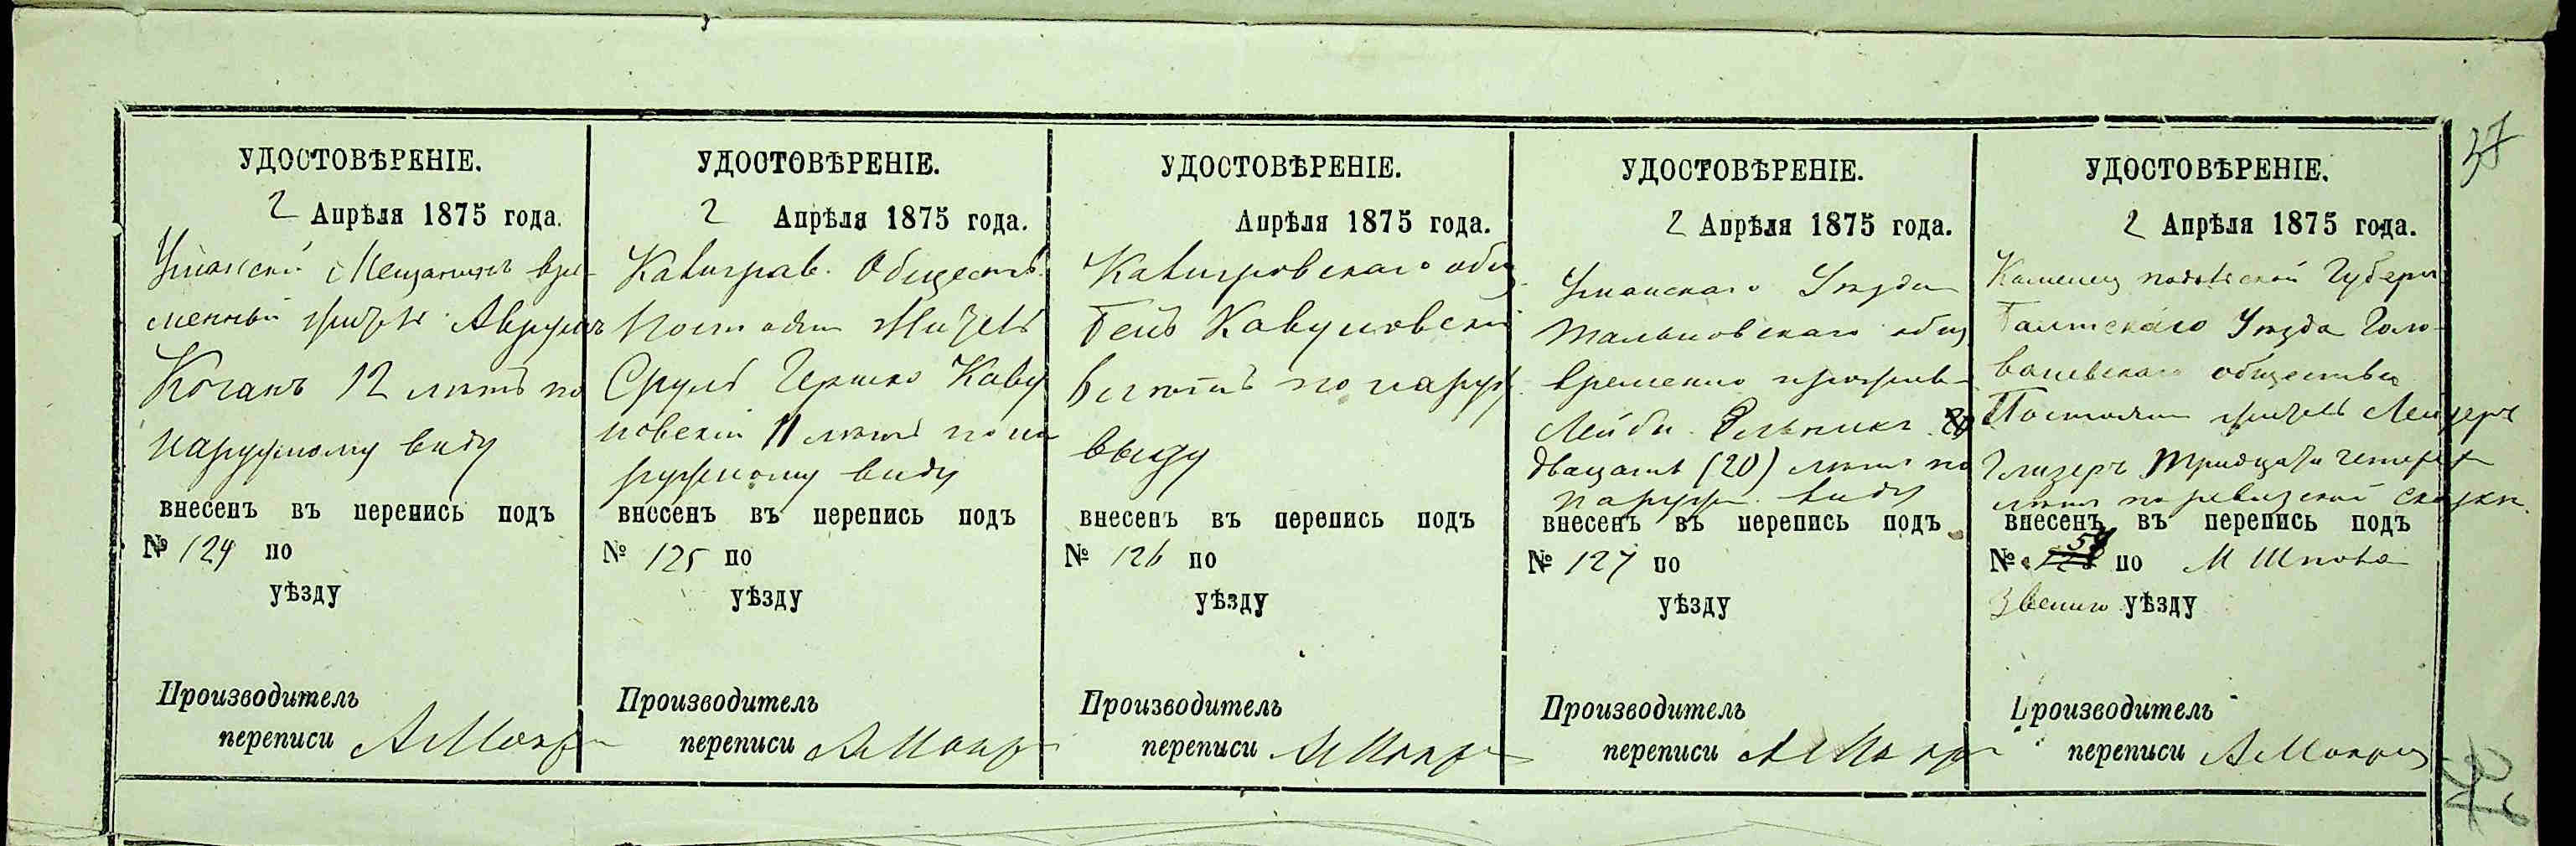 37
УДОСТОВѢРЕНІЕ.
2 Апрѣля 1875 года.
Уманскій Мещанинъ вре-
менный житель Аврумъ
Коганъ 12 лѣтъ по
наружному виду
внесенъ въ перепись подъ
№ 124 по
уѣзду
Производитель
переписи
УДОСТОВѢРЕНІЕ.
2 Апрѣля 1875 года.
Обществ.
житель
Сруль Гершко Каву
новскій 11 лѣтъ по на
ружному виду
внесенъ въ перепись подъ
№ 125 по
уѣзду
Производитель
переписи
УДОСТОВѢРЕНІЕ.
Апрѣля 1875 года.
общ
Кавуновскій
лѣтъ по наруж
виду
внесенъ въ перепись подъ
№ 126 по
уѣзду
Производитель
переписи
УДОСТОВѢРЕНІЕ.
2 Апрѣля 1875 года.
Уманскаго Уѣзда
Тальновскаго общ
временно прожив
Лейба
двацать (20) лѣтъ по
наружн. виду
внесенъ въ перепись подъ
№ 127 по
уѣзду
Производитель
переписи
УДОСТОВѢРЕНІЕ.
2 Апрѣля 1875 года.
Каменец подольской Губерн
Балтскаго Уѣзда Голо-
ваневскаго общества
житель Лейзеръ
Глизеръ тридцати четырех
лѣтъ по ревизской сказки.
внесенъ въ перепись подъ
№ по М Шпола
Звениго уѣзду
Производитель
переписи